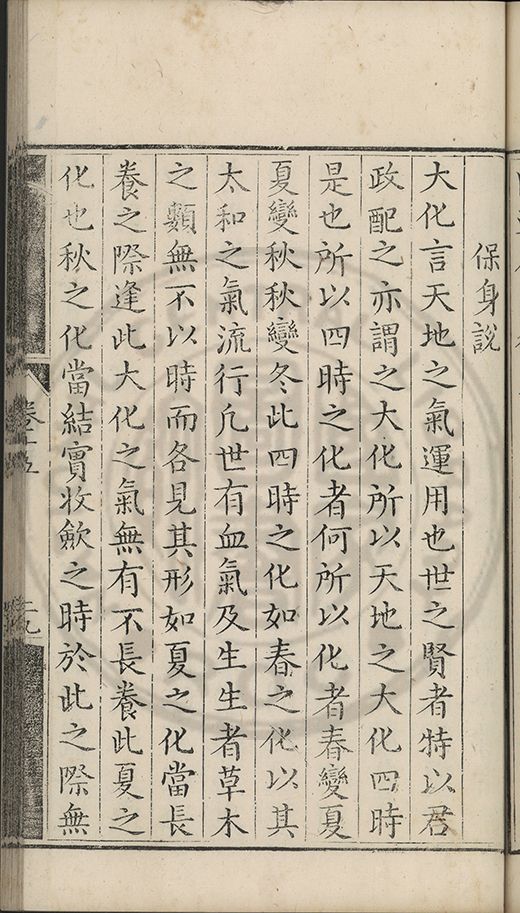 保身說
大化言天地之氣運用也世之賢者特以君
政配之亦謂之大化所以天地之大化四時
是也所以四時之化者何所以化者春變夏
夏變秋秋變冬此四時之化如春之化以其
太和之氣流行凡世有血氣及生生者草木
之類無不以時而各見其形如夏之化當長
養之際逢此大化之氣無有不長養此夏之
化也秋之化當結實收歛之時於此之際無
卷十五